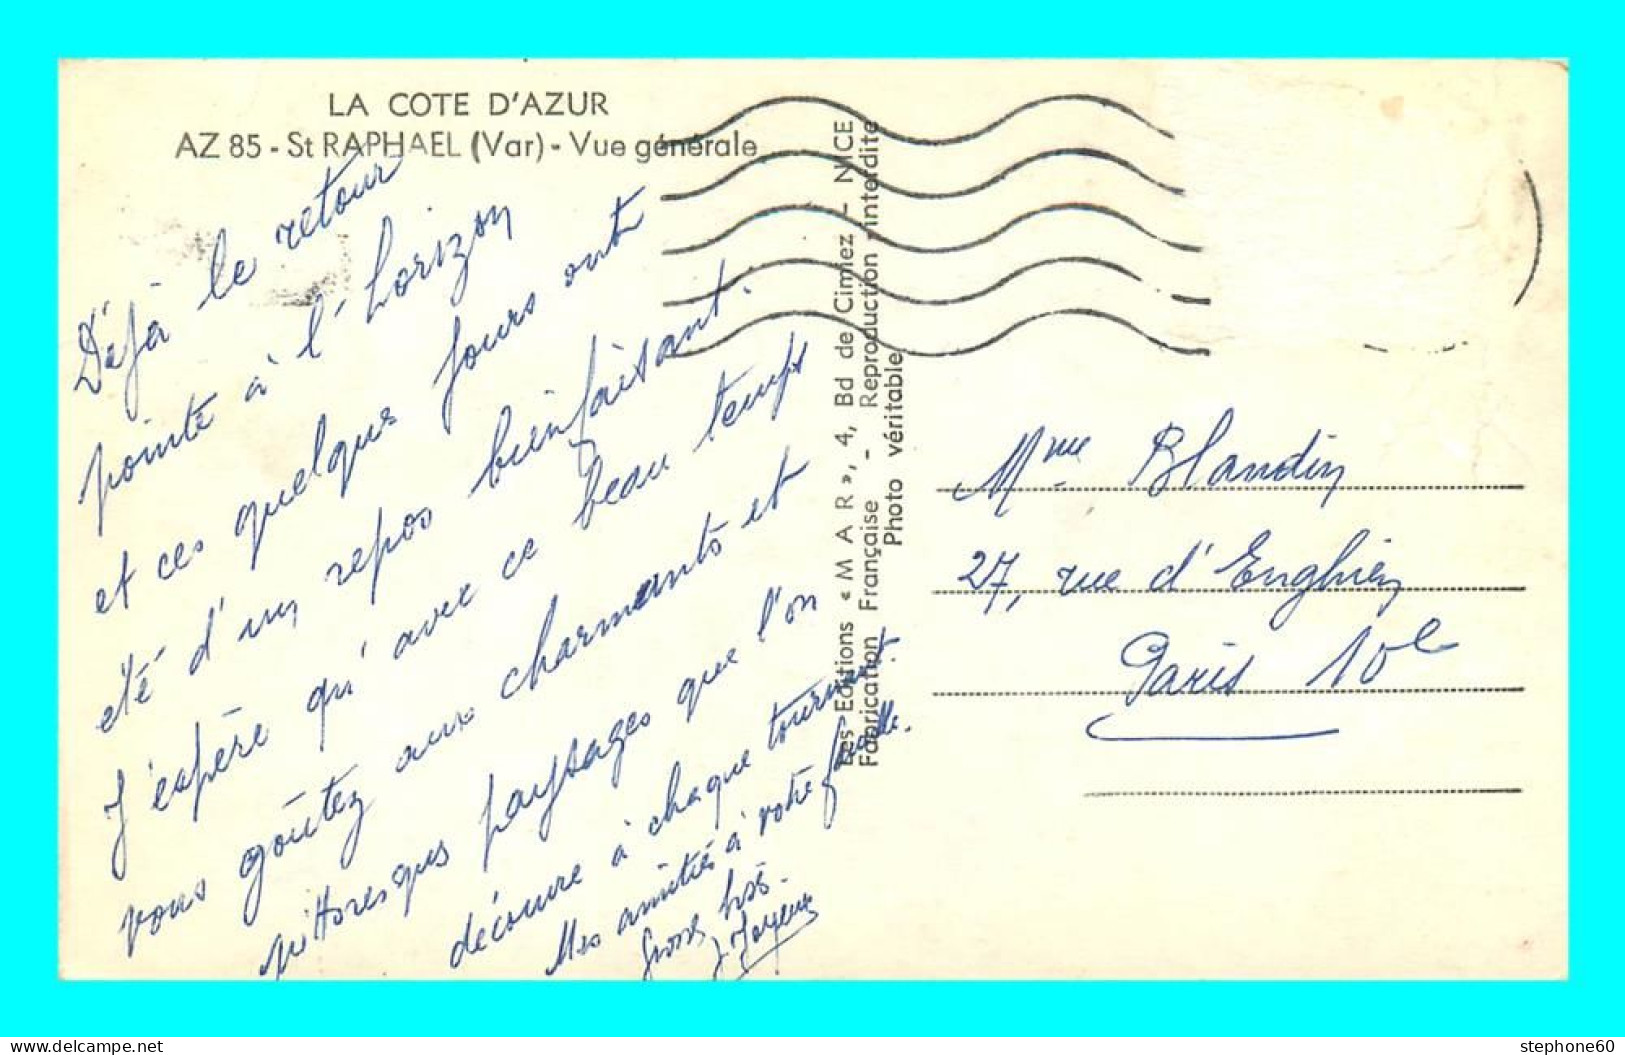 LA COTE D'AZUR
AZ 85 - St RAPHAEL (Var) - Vue générale
Déjà le retour
pointe à l'horizon
et ces quelques jours ont
été d'un repos bienfaisant.
J'espère qu'avec ce beau temps
vous goûtez aux charmants et
pittoresques paysages que l'on
découvre à chaque tournant.
Mes amitiés à votre famille.
Gros bses.
Les Editions « M A R », 4, Bd de Cimiez - NICE
Fabrication Française - Reproduction interdite
Photo véritable
Mme Blandin
27, rue d'Enghien
Paris 10e
www.delcampe.net
stephone60